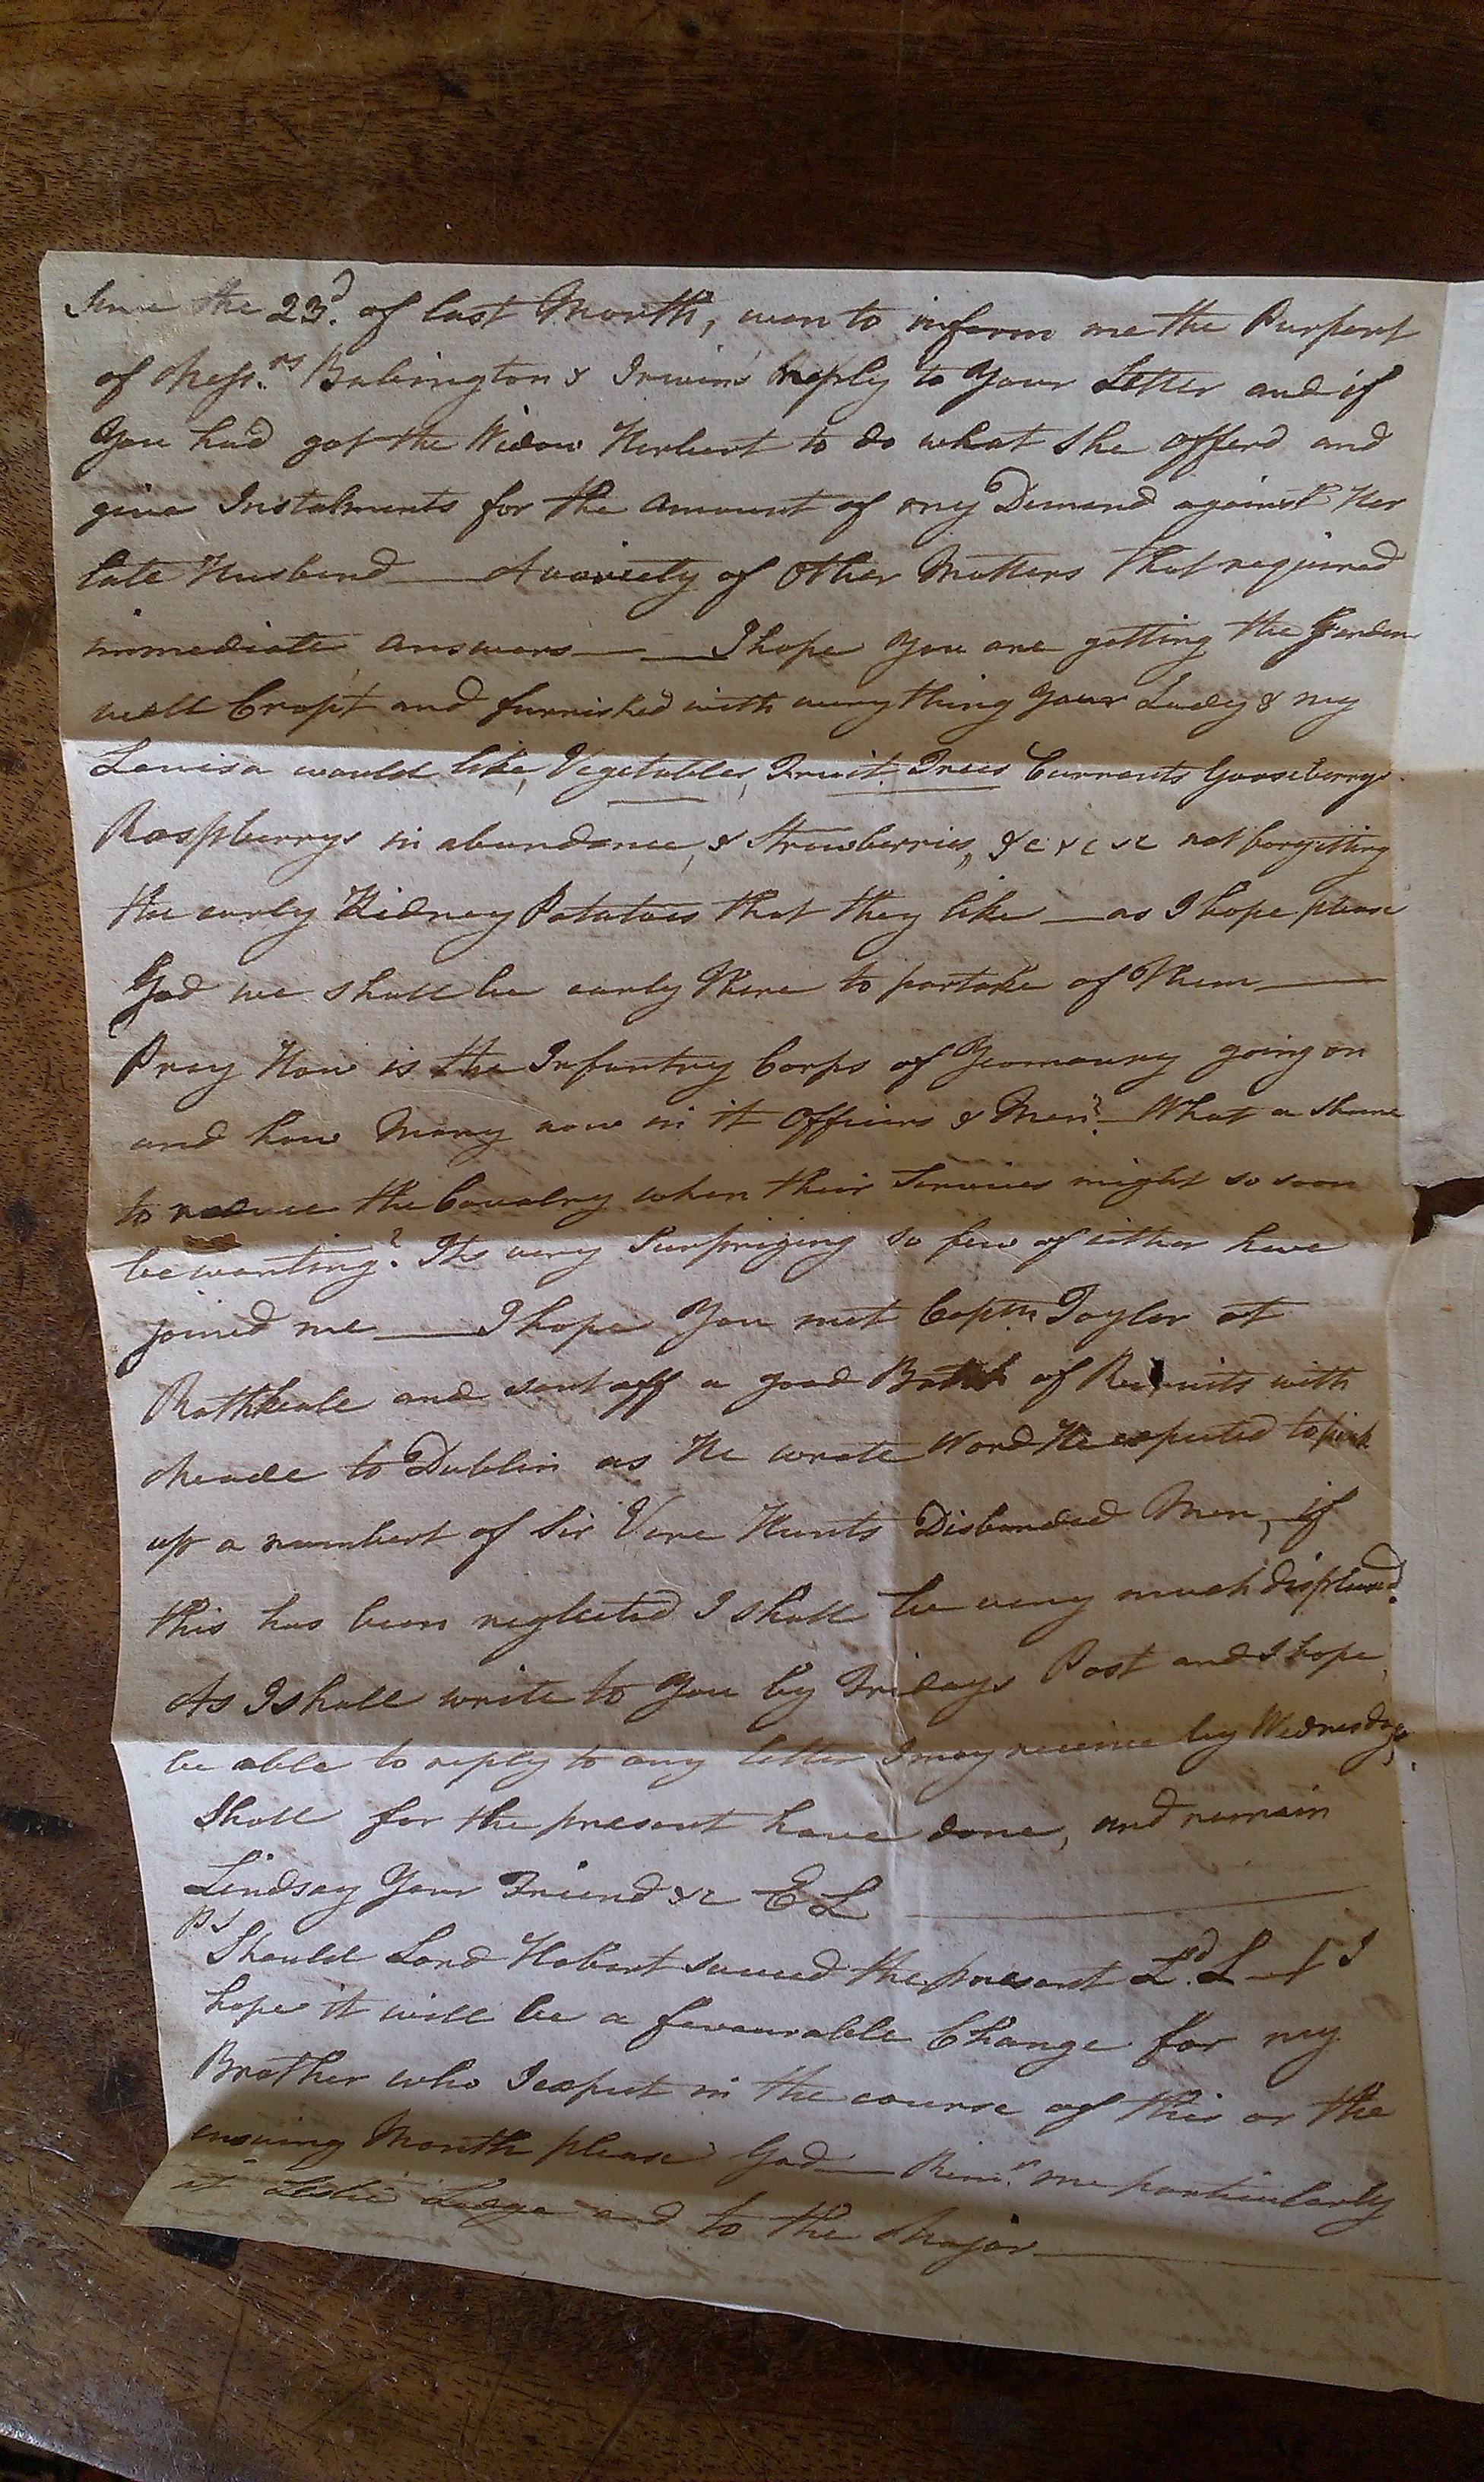 Since the 23d. of last Month, even to inform me the Purport
of Messrs. Babington & Irwin's reply to Your Letter and if
You had got the Widow Herbert to do what She offerd and
give Instalments for the amount of my Demand against Her
late Husband — A variety of Other Matters that required
immediate answers — I hope You are getting the Garden
well Crop't and furnished with every thing Your Lady & my
Louisa would like, Vegetables, Fruit Trees Currants Gooseberrys
Raspberrys in abundance, & Strawberries, &c &c &c not forgetting
the early Kidney Potatoes that they like — as I hope please
God we shall be early there to partake of Them —
Pray How is the Infantry Corps of Yeomanry going on
and how Many now in it Officers & Men? — What a Shame
to reduce the Cavalry when their Services might so soon
be wanting? Its very Surprizing so few of either have
joined me — I hope You met Captn Taylor at
Rathkeale and sent off a good Batch of Recruits with
Meade to Dublin as He wrote Word He expected to pick
up a number of Sir Vere Hunts Disbanded Men, if
this has been neglected I shall be very much displeased.
As I shall write to You by Fridays Post and I hope
be able to reply to any letter I may receive by Wednesdays,
Shall for the present have done, and remain
Lindsay Your Friend &c E L
PS
Should Lord Hobart succeed the present Ld. L — t I
hope it will be a favourable Change for my
Brother who I expect in the course of this or the
ensuing Month please God — Remr. me particularly
at Leslie Lodge and to the Major —